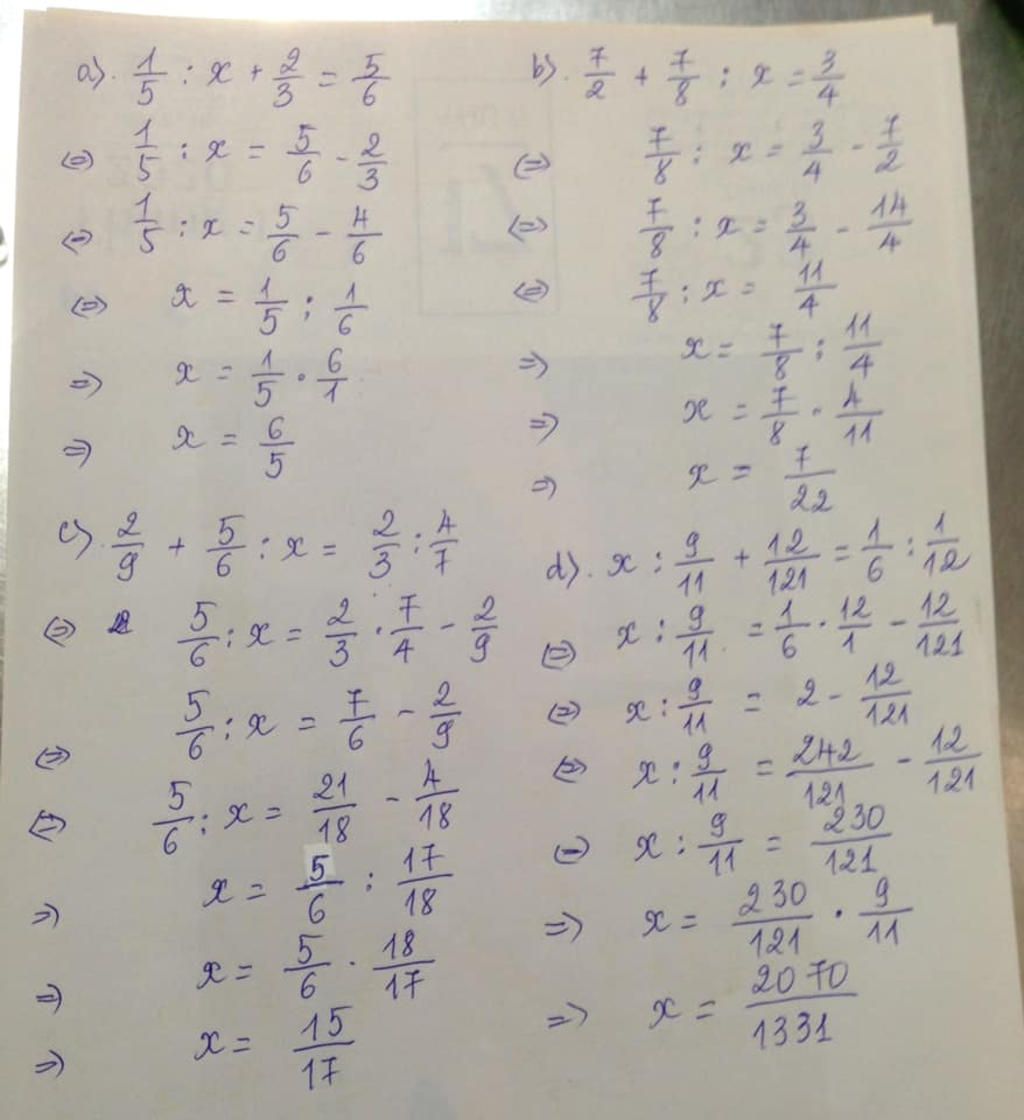 a). 1/5 : x + 2/3 = 5/6
⇔ 1/5 : x = 5/6 - 2/3
⇔ 1/5 : x = 5/6 - 4/6
⇔ x = 1/5 : 1/6
⇒ x = 1/5 . 6/1
⇒ x = 6/5
b). 7/2 + 7/8 : x = 3/4
⇔ 7/8 : x = 3/4 - 7/2
⇔ 7/8 : x = 3/4 - 14/4
⇔ 7/8 : x = 11/4
⇒ x = 7/8 : 11/4
⇒ x = 7/8 . 4/11
⇒ x = 7/22
c). 2/9 + 5/6 : x = 2/3 : 4/7
⇔ 5/6 : x = 2/3 . 7/4 - 2/9
⇔ 5/6 : x = 7/6 - 2/9
⇔ 5/6 : x = 21/18 - 4/18
⇒ x = 5/6 : 17/18
⇒ x = 5/6 . 18/17
⇒ x = 15/17
d). x : 9/11 + 12/121 = 1/6 : 1/12
⇔ x : 9/11 = 1/6 . 12/1 - 12/121
⇔ x : 9/11 = 2 - 12/121
⇔ x : 9/11 = 242/121 - 12/121
⇔ x : 9/11 = 230/121
⇒ x = 230/121 . 9/11
⇒ x = 2070/1331